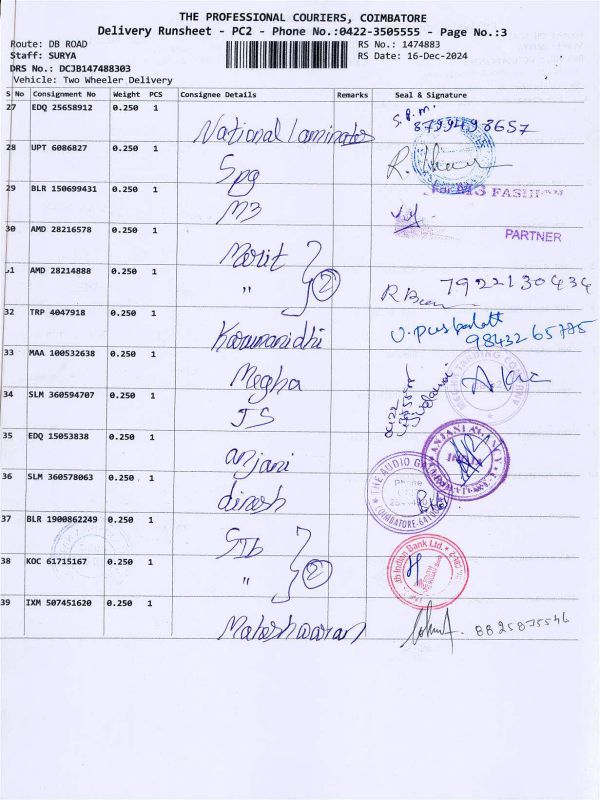 THE PROFESSIONAL COURIERS, COIMBATORE
Delivery Runsheet - PC2 - Phone No.:0422-3505555 - Page No.:3
Route: DB ROAD RS No.: 1474883
Staff: SURYA RS Date: 16-Dec-2024
DRS No.: DCJB147488303
Vehicle: Two Wheeler Delivery
S No Consignment No Weight PCS Consignee Details Remarks Seal & Signature
27 EDQ 25658912 0.250 1 National Laminates S.P.M. 8799498657
28 UPT 6086827 0.250 1 Spg
29 BLR 150699431 0.250 1 M3 For M3 FASHIONS
PARTNER
30 AMD 28216578 0.250 1 Merit
31 AMD 28214888 0.250 1 " 2 7922130434
32 TRP 4047918 0.250 1 Karumanidhi 9843265785
33 MAA 100532638 0.250 1 Megha
34 SLM 360594707 0.250 1 JS
35 EDQ 15053838 0.250 1 anjani ANJANI AGENCY
36 SLM 360578063 0.250 1 dinesh THE AUDIO COIMBATORE-641
37 BLR 1900862249 0.250 1 SIb
38 KOC 61715167 0.250 1 " 2 Indian Bank Ltd.
39 IXM 507451620 0.250 1 Maheshwaran 8825875546